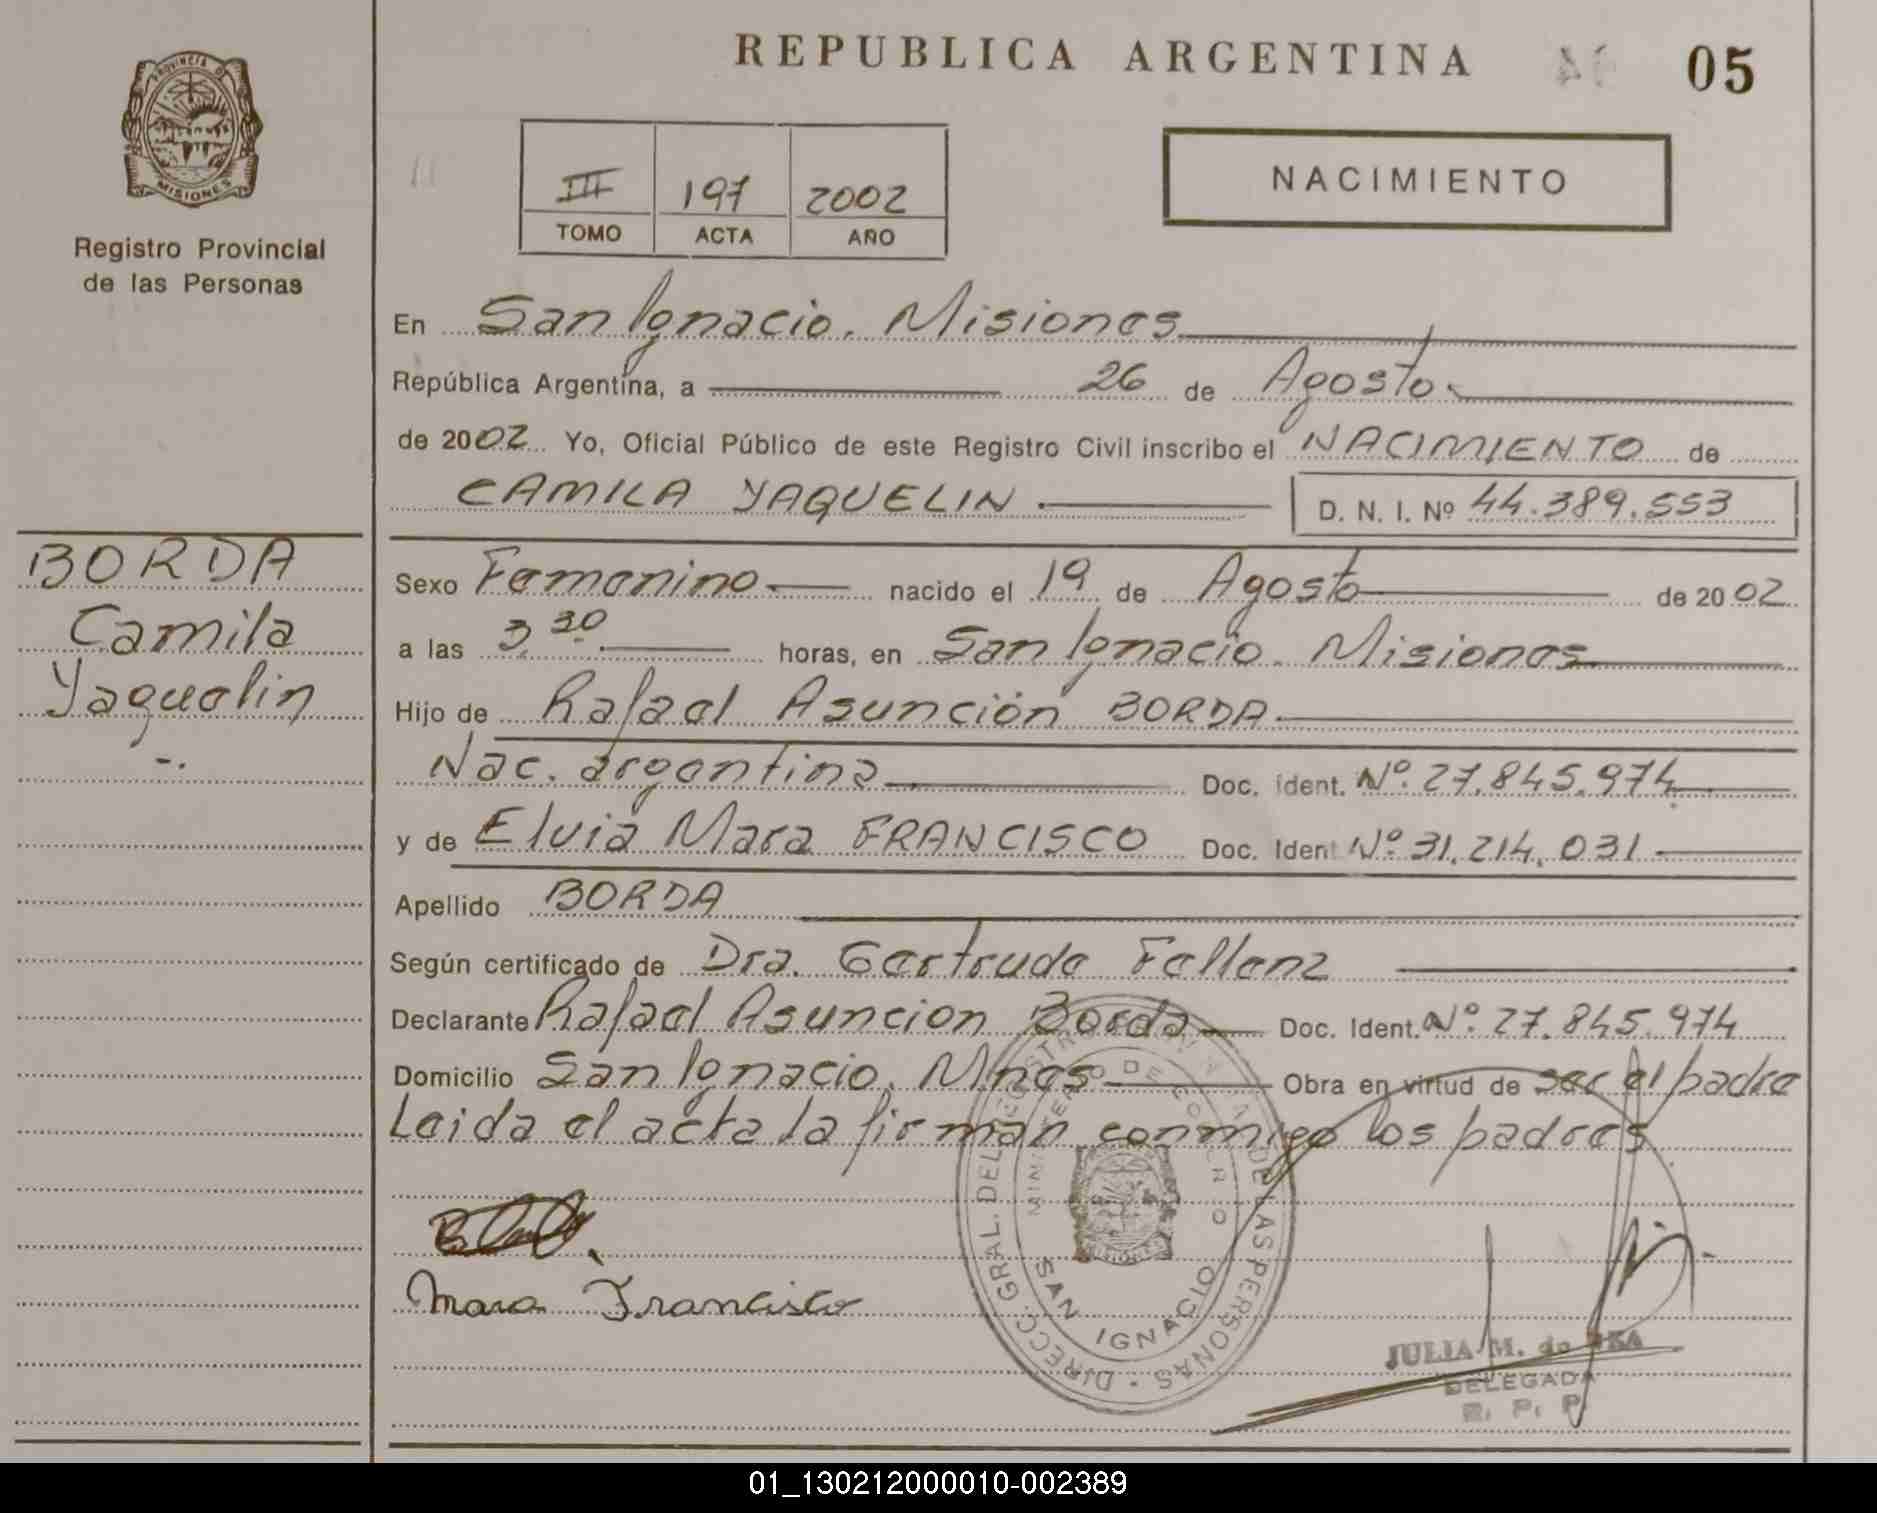 REPUBLICA ARGENTINA 05
PROVINCIA D
MISIONES
Registro Provincial
de las Personas
III 197 2002
TOMO ACTA AÑO
NACIMIENTO
En San Ignacio. Misiones
República Argentina, a 26 de Agosto
de 2002 Yo, Oficial Público de este Registro Civil inscribo el NACIMIENTO de
CAMILA YAQUELIN D. N. I. Nº 44.389.553
BORDA
Camila
Yaquelin
-.
Sexo Femenino nacido el 19 de Agosto de 2002
a las 3,30 horas, en San Ignacio. Misiones
Hijo de Rafael Asunción BORDA
Nac. argentina Doc. Ident. Nº. 27.845.974
y de Elvia Mara FRANCISCO Doc. Ident Nº. 31.214.031
Apellido BORDA
Según certificado de Dra. Gertrude Fellenz
Declarante Rafael Asuncion Borda Doc. Ident. Nº. 27.845.974
Domicilio San Ignacio. Mnes Obra en virtud de ser el padre
Leida el acta la firman conmigo los padres
Mara Francisco
DIRECC. GRAL. DEL REGISTRO DE LAS PERSONAS
MINISTERIO DE GOBIERNO
MISIONES
SAN IGNACIO
JULIA M. de
DELEGADA
R. P. P.
01_130212000010-002389